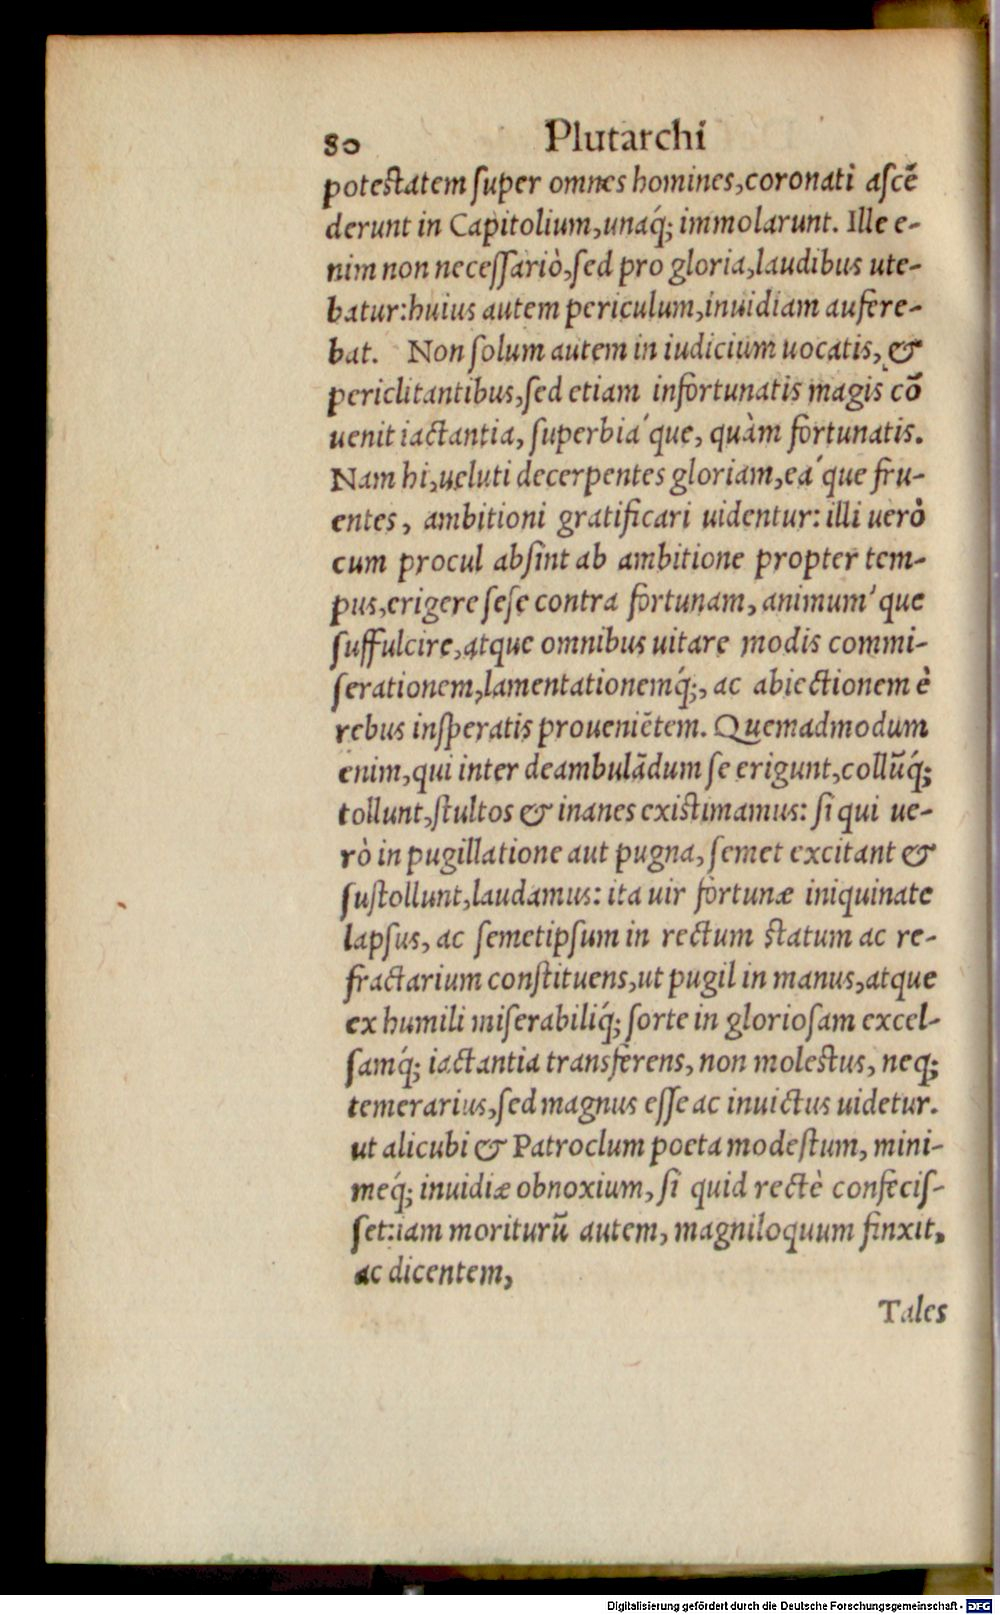 80 Plutarchi
potestatem ſuper omnes homines,coronati aſcē
derunt in Capitolium,unaq́; immolarunt. Ille e-
nim non neceſſariò,ſed pro gloria,laudibus ute-
batur:huius autem periculum,inuidiam aufere-
bat. Non ſolum autem in iudicium uocatis, &
periclitantibus,ſed etiam infortunatis magis cō
uenit iactantia, ſuperbia´que, quàm fortunatis.
Nam hi,ueluti decerpentes gloriam,ea´que fru-
entes, ambitioni gratificari uidentur: illi uerò
cum procul abſint ab ambitione propter tem-
pus,erigere ſeſe contra fortunam, animum´que
ſuffulcire,atque omnibus uitare modis commi-
ſerationem,lamentationemq́;, ac abiectionem è
rebus inſperatis proueniētem. Quemadmodum
enim,qui inter deambulādum ſe erigunt,collūq́;
tollunt,ſtultos & inanes existimamus: ſi qui ue-
rò in pugillatione aut pugna, ſemet excitant &
ſuſtollunt,laudamus: ita uir fortunæ iniquinate
lapſus, ac ſemetipſum in rectum statum ac re-
fractarium conſtituens,ut pugil in manus,atque
ex humili miſerabiliq́; ſorte in glorioſam excel-
ſamq́; iactantia transferens, non molestus, neq;
temerarius,ſed magnus eſſe ac inuictus uidetur.
ut alicubi & Patroclum poeta modeſtum, mini-
meq́; inuidiæ obnoxium, ſi quid rectè confeciſ-
ſet:iam moriturū autem, magniloquum finxit,
ac dicentem,
Tales
Digitalisierung gefördert durch die Deutsche Forschungsgemeinschaft - DFG